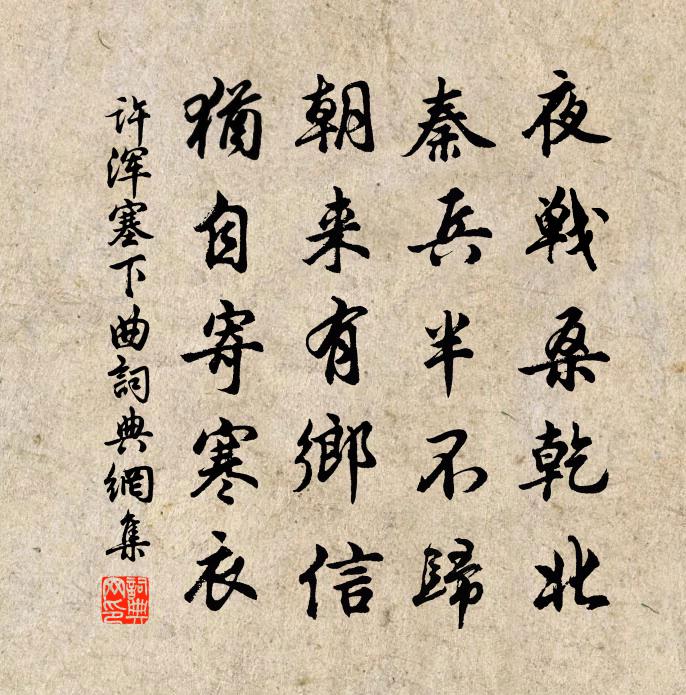 夜戰桑乾北
秦兵半不歸
朝来有鄉信
猶自寄寒衣
許渾塞下曲詞典網集
詞典網印